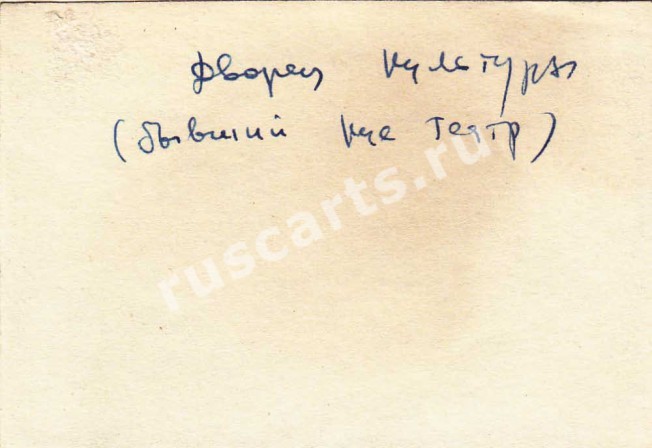 Дворец культуры
(бывший театр)
ruscarts.ru